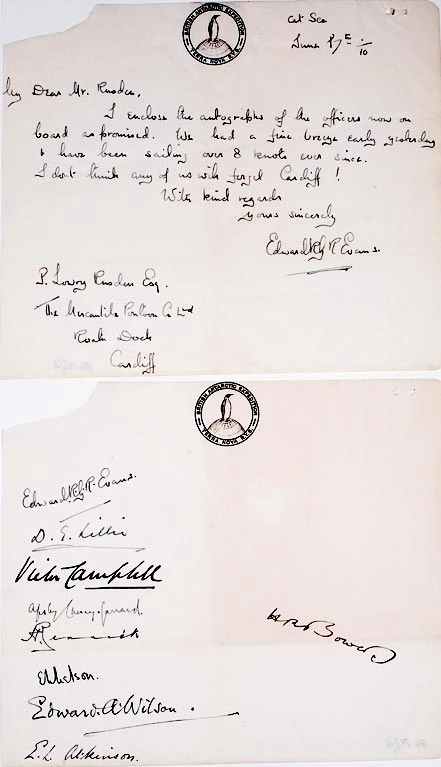 BRITISH ANTARCTIC EXPEDITION
TERRA NOVA R.Y.S.
At Sea
June 17th /10
My Dear Mr. Rusden,
I enclose the autographs of the officers now on
board as promised. We had a fine breeze early yesterday
& have been sailing over 8 knots ever since.
I don't think any of us will forget Cardiff!
With kind regards
yours sincerely
Edward R.G.R. Evans.
P. Lowry Rusden Esq.
The Mercantile Pontoon Co Ltd
Roath Dock
Cardiff
BRITISH ANTARCTIC EXPEDITION
TERRA NOVA R.Y.S.
Edward R.G.R. Evans.
D. G. Lillie
Victor Campbell
Apsley Cherry-Garrard.
H R Bowers
EWNelson.
Edward. A. Wilson.
E. L. Atkinson.